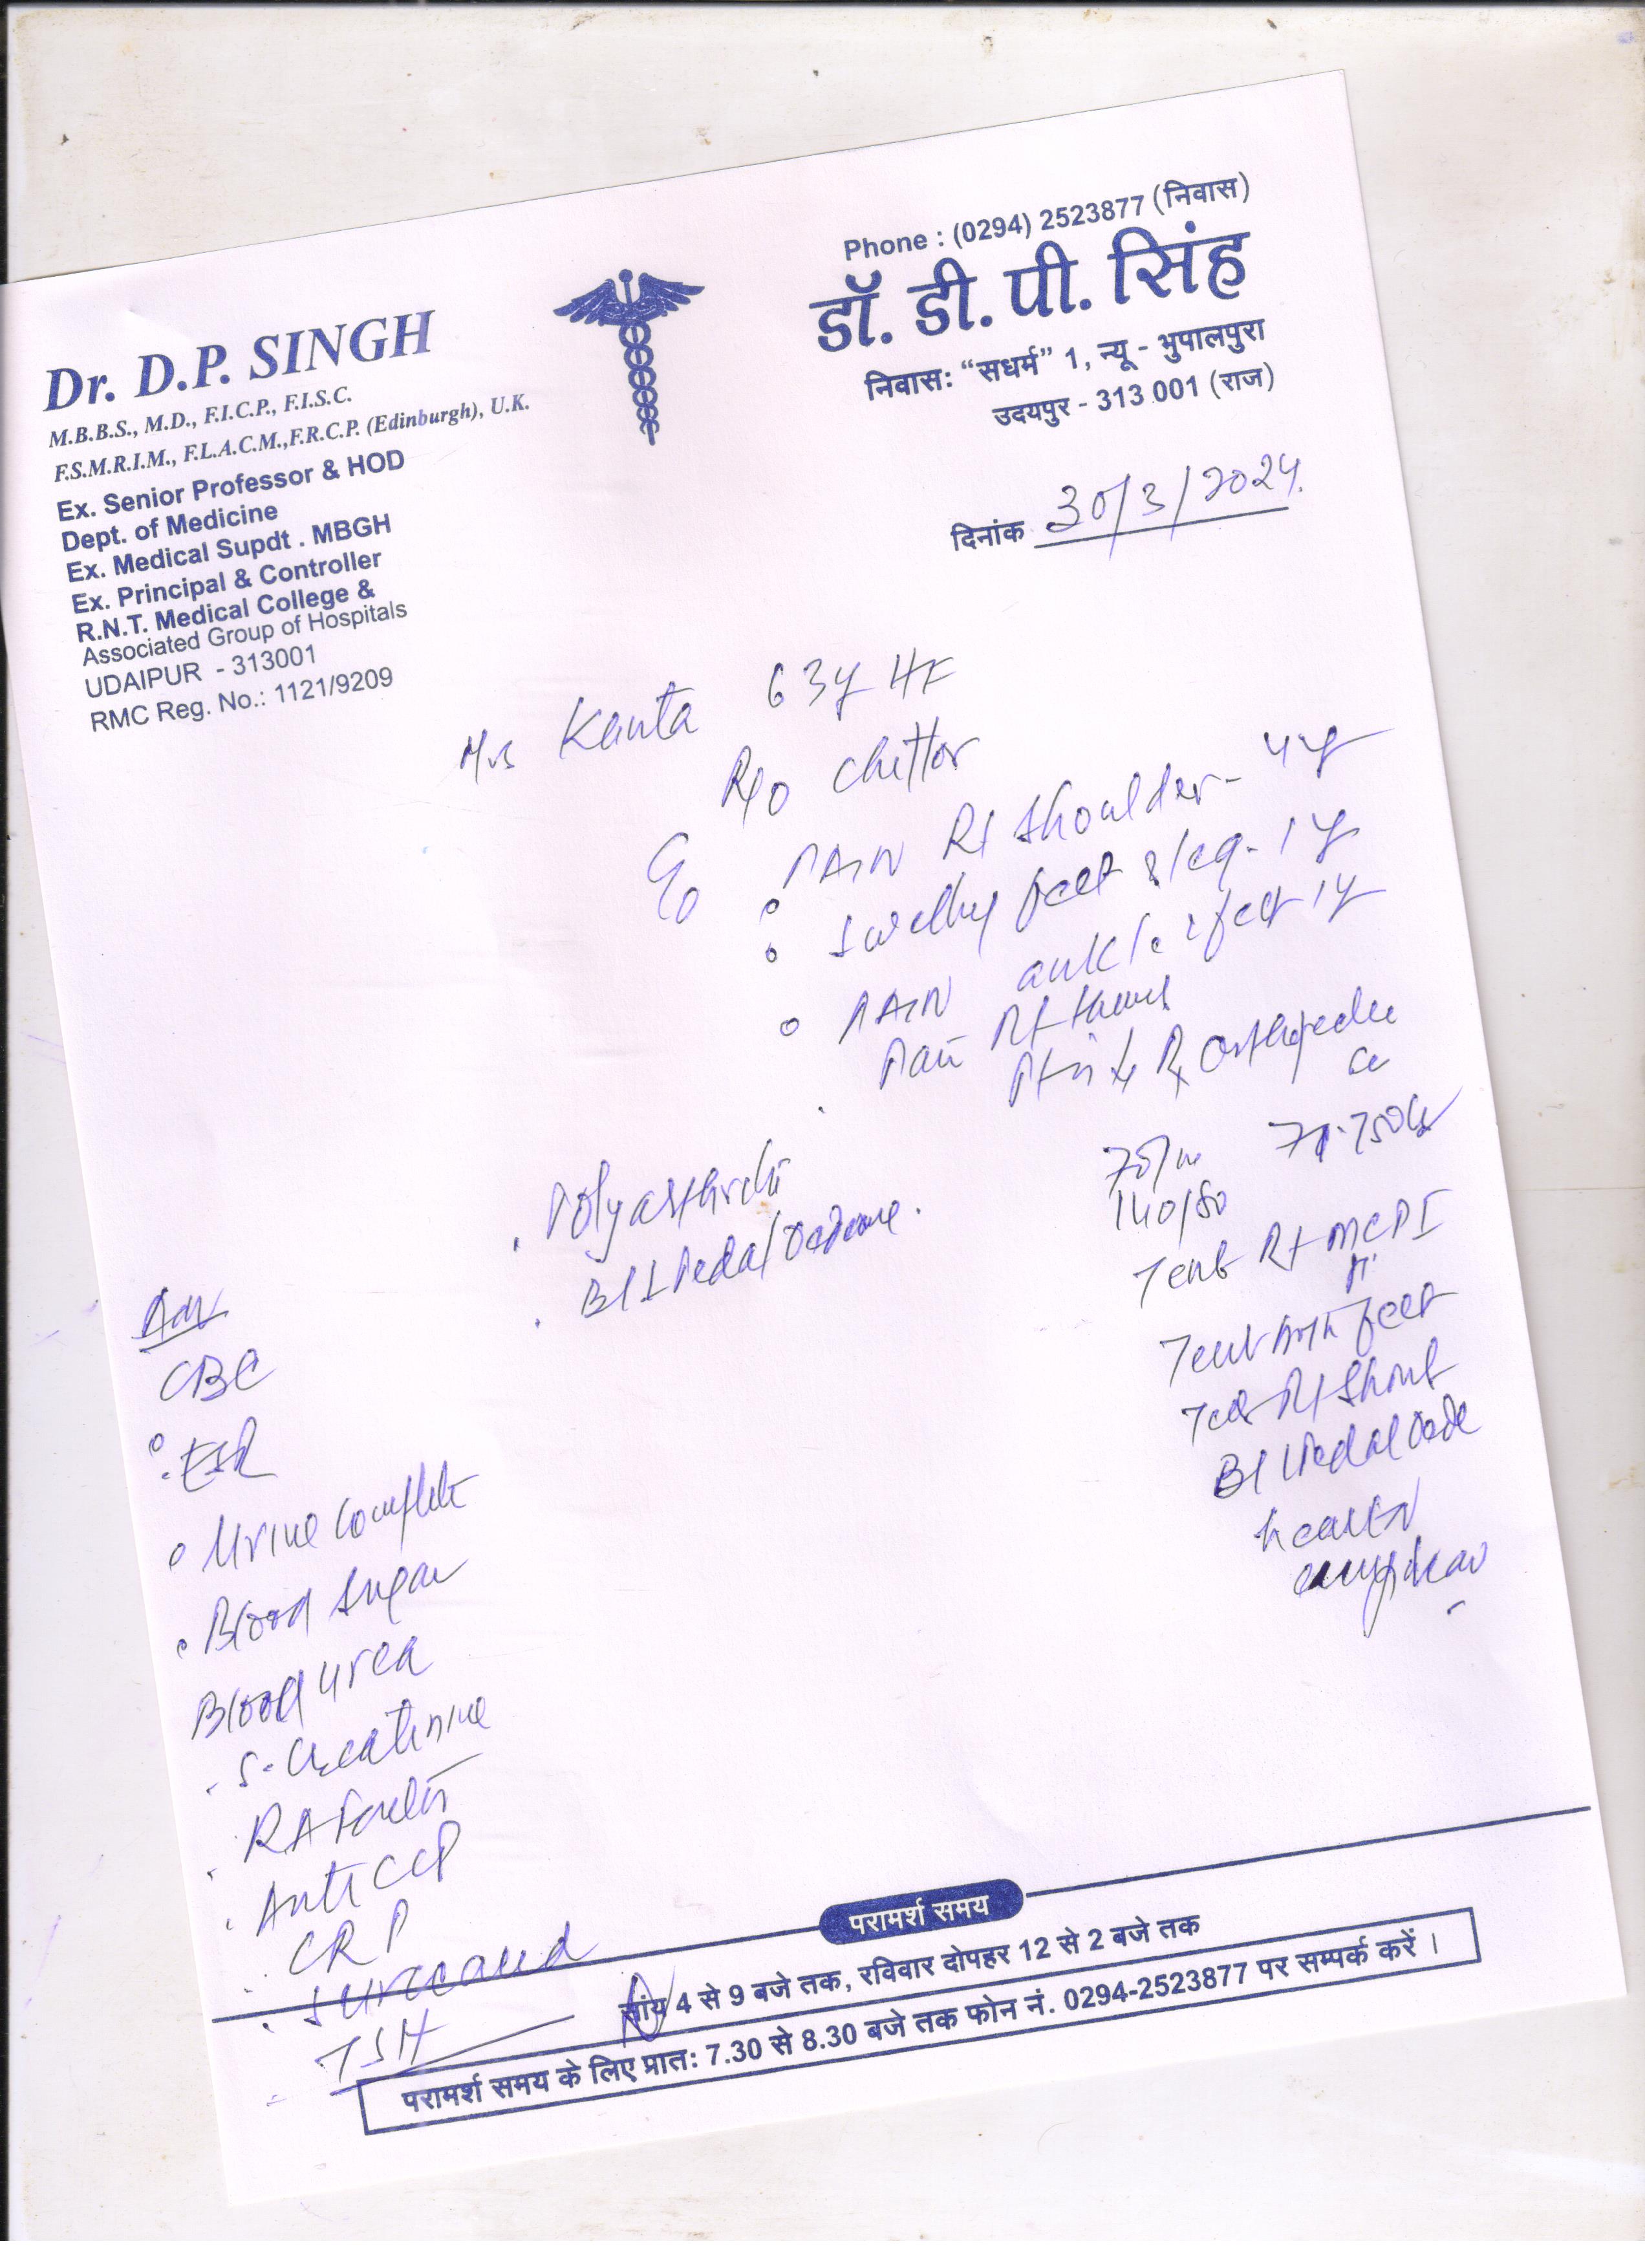 Phone : (0294) 2523877 (निवास)
डॉ. डी. पी. सिंह
निवास: “सधर्म” 1, न्यू - भुपालपुरा
उदयपुर - 313 001 (राज)
Dr. D.P. SINGH
M.B.B.S., M.D., F.I.C.P., F.I.S.C.
F.S.M.R.I.M., F.L.A.C.M.,F.R.C.P. (Edinburgh), U.K.
Ex. Senior Professor & HOD
Dept. of Medicine
Ex. Medical Supdt . MBGH
Ex. Principal & Controller
R.N.T. Medical College &
Associated Group of Hospitals
UDAIPUR - 313001
RMC Reg. No.: 1121/9209
दिनांक 30/3/2024.
Mrs Kanta 63y HF
R/o Chittor
C/o
PAIN Rt Shoulder - 4y
Swelling feet & leg - 1y
PAIN ankle & feet 1y
Pain Rt
Rx Orthopedic
Polyarthritis
B/L Pedal Oedema.
140/80
Tend Rt MCP I
II
Tend both feet
Rt
B/L Pedal
heart N
Adv
CBC
ESR
Urine Complete
Blood Sugar
Blood Urea
S. Creatinine
RA Factor
Anti CCP
CRP
S uric acid
TSH
परामर्श समय
सांय 4 से 9 बजे तक, रविवार दोपहर 12 से 2 बजे तक
परामर्श समय के लिए प्रात: 7.30 से 8.30 बजे तक फोन नं. 0294-2523877 पर सम्पर्क करें ।